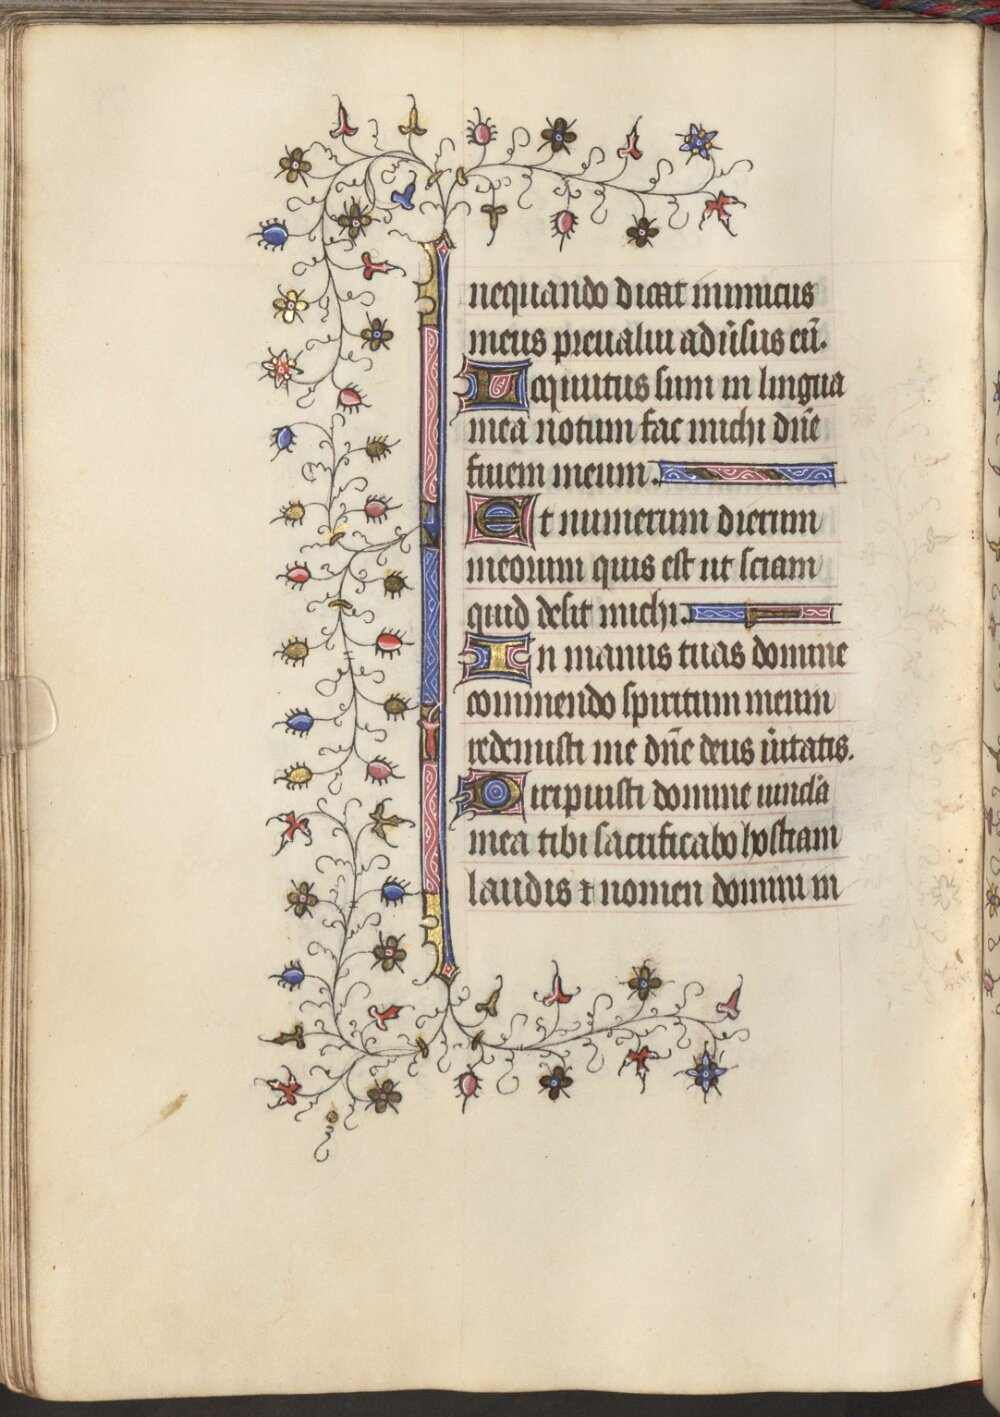 nequando dicat inimicus
meus preualui adũsus eũ.
Locutus sum in lingua
mea notum fac michi dñe
finem meum.
Et numerum dierum
meorum quis est ut sciam
quid desit michi.
In manus tuas domine
commendo spiritum meum
redemisti me dñe deus ũitatis.
Diripuisti domine uincla
mea tibi sacrificabo hostiam
laudis ⁊ nomen domini in